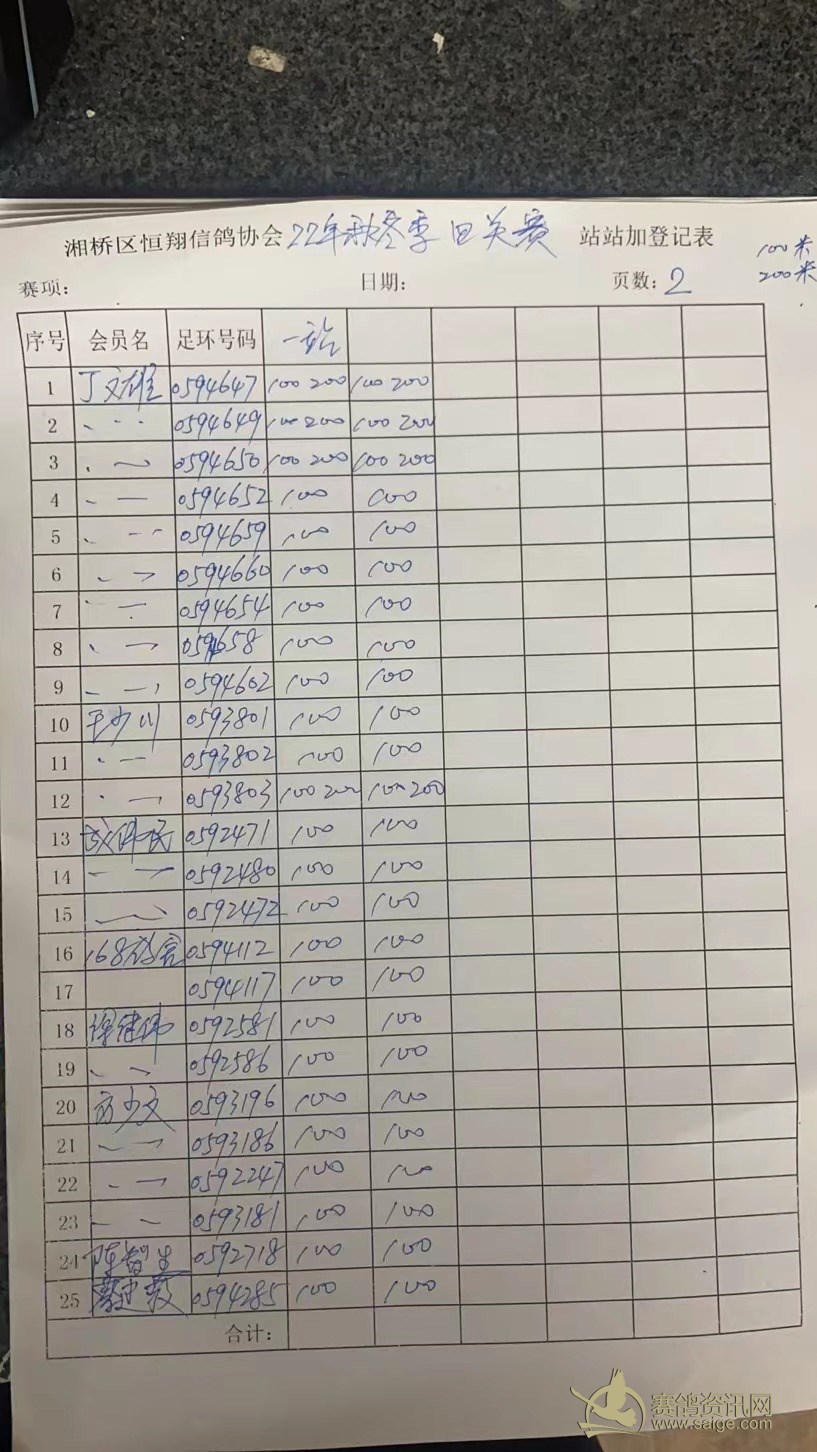 湘桥区恒翔信鸽协会 22年秋冬季四关赛 站站加登记表
100米
200米
赛项: 日期: 页数: 2
序号 会员名 足环号码 一站
1 丁文雄 0594647 100 200 100 200
2 0594649 100 200 100 200
3 0594650 100 200 100 200
4 0594652 100 100
5 0594659 100 100
6 0594660 100 100
7 0594654 100 100
8 0594658 100 100
9 0594602 100 100
10 王少川 0593801 100 100
11 0593802 100 100
12 0593803 100 200 100 200
13 0592471 100 100
14 0592480 100 100
15 0592472 100 100
16 168 0594112 100 100
17 0594117 100 100
18 徐建伟 0592581 100 100
19 0592586 100 100
20 方少文 0593196 100 100
21 0593186 100 100
22 0592247 100 100
23 0593181 100 100
24 陈智生 0592718 100 100
25 0594285 100 100
合计:
赛鸽资讯网
www.saige.com